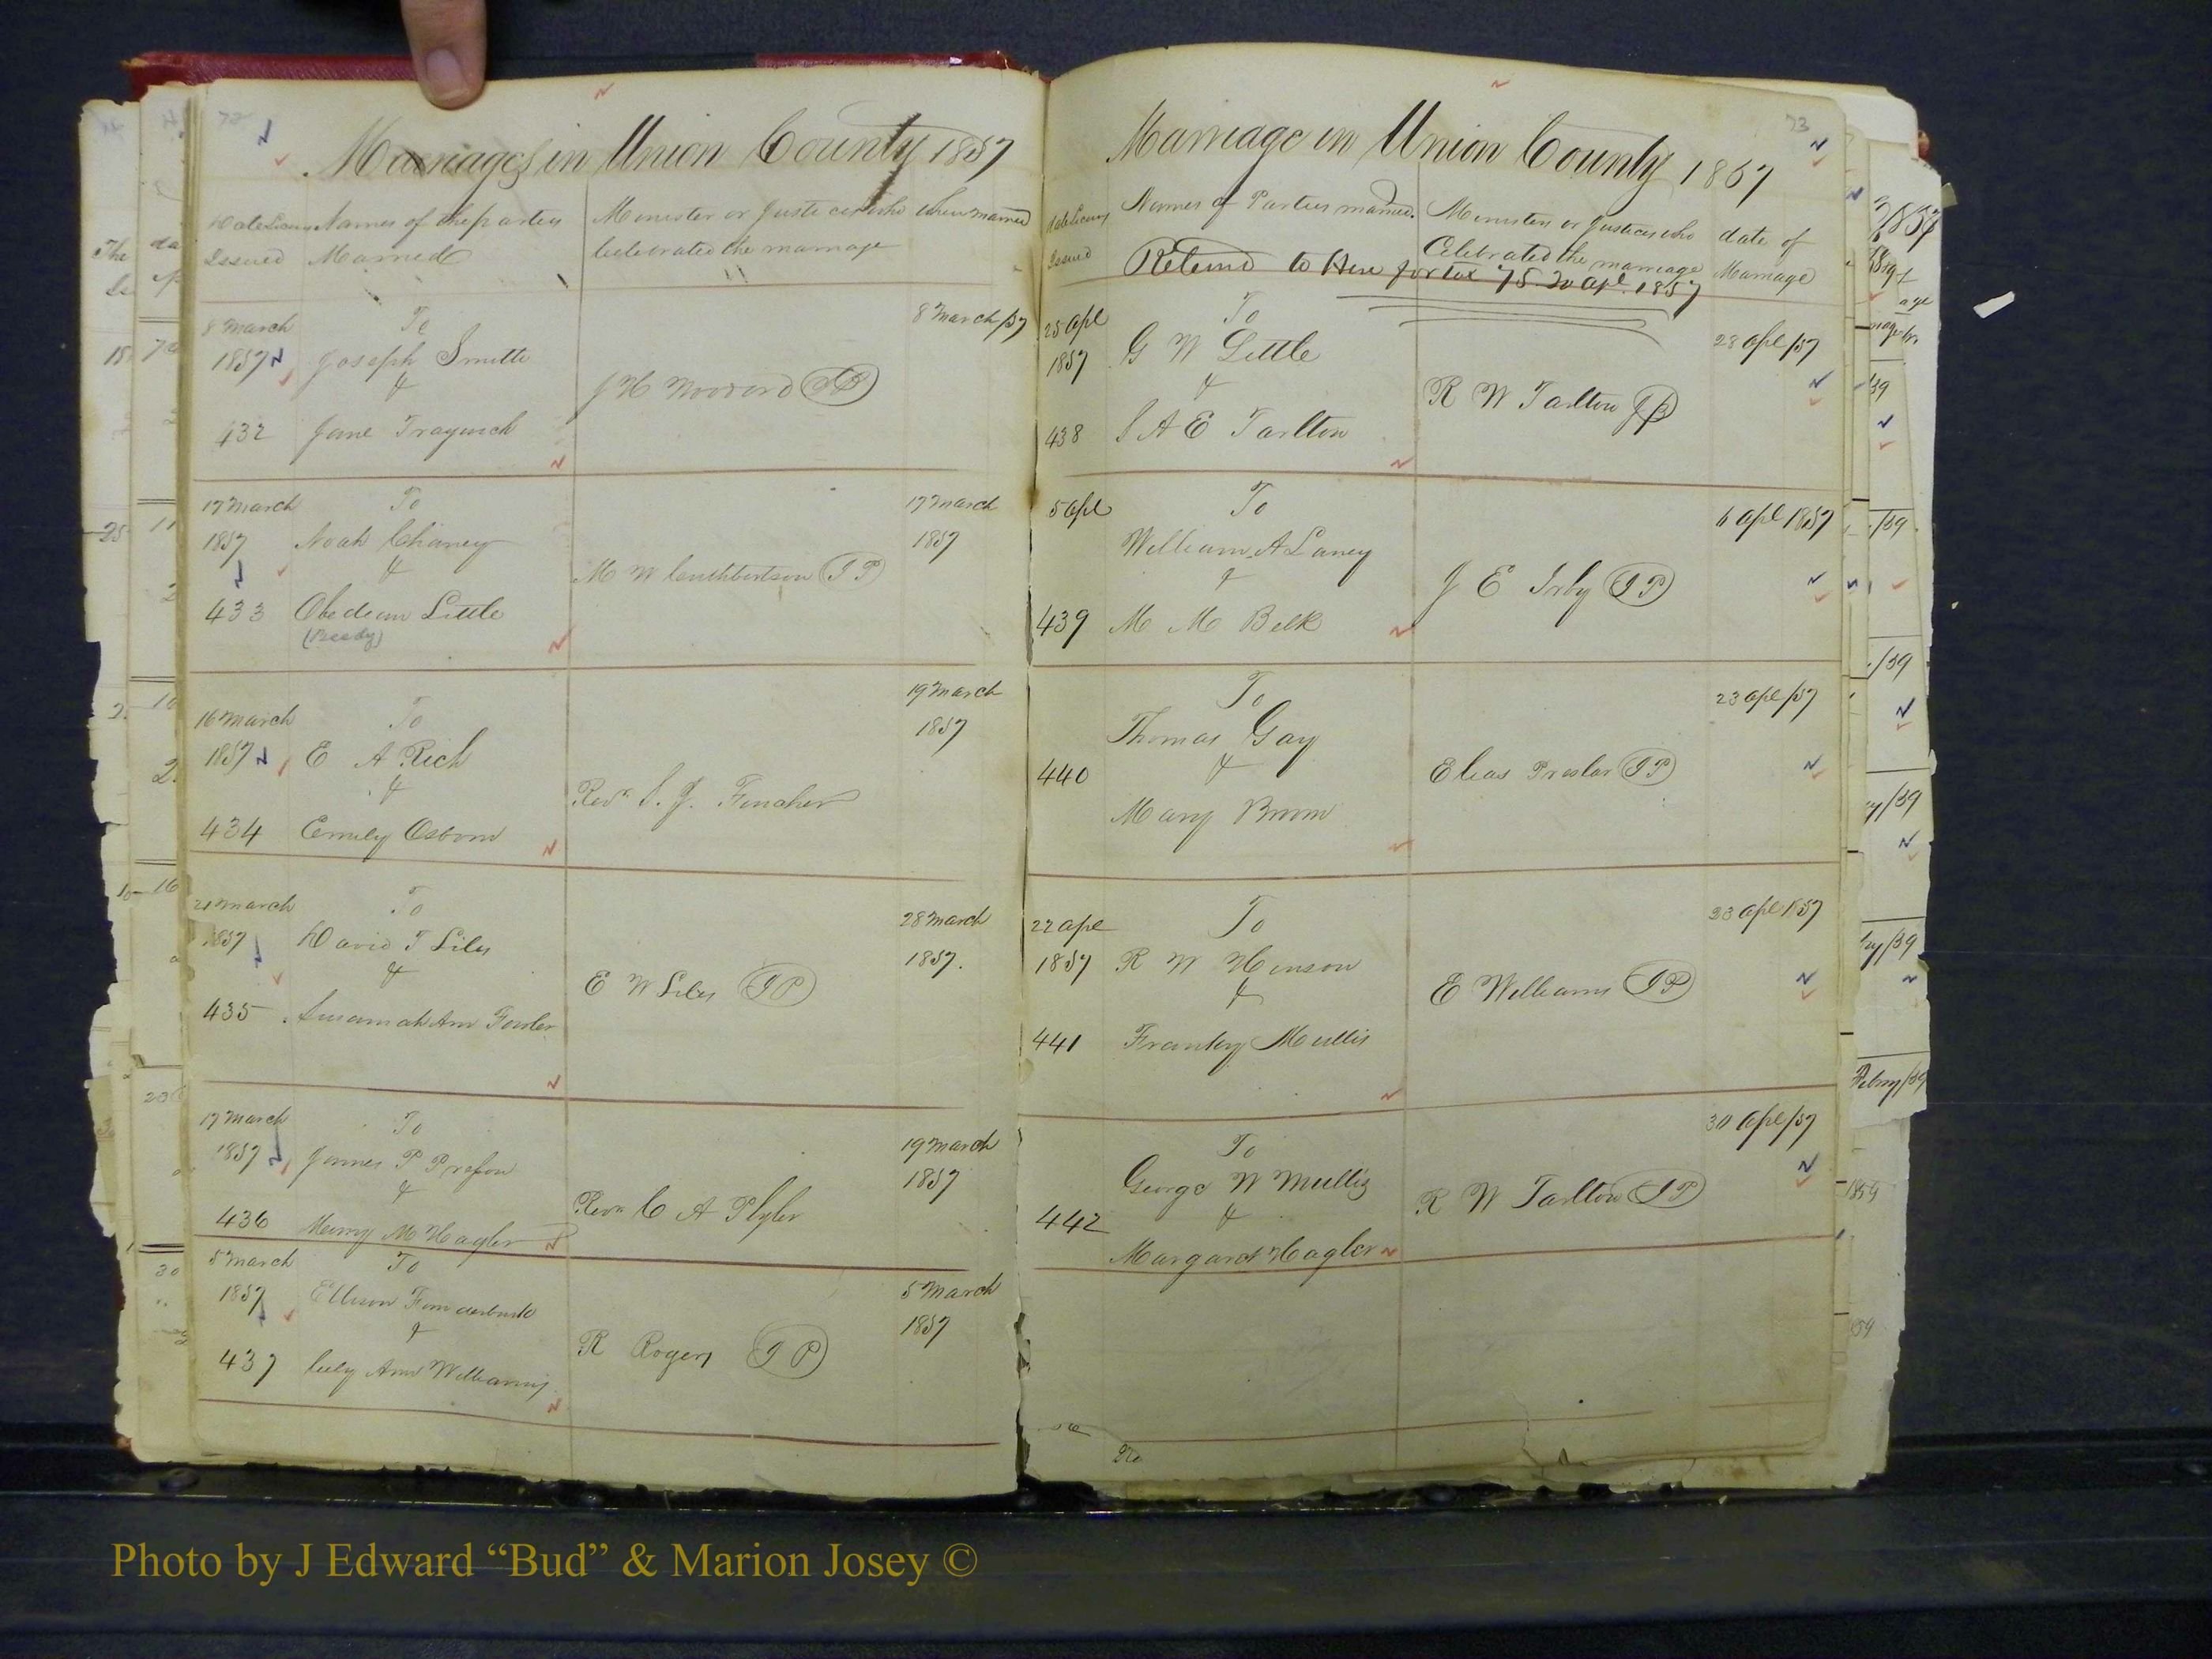 72
Marriages in Union County 1857
Date Licens Issued
Names of the parties Married
Minister or Justices who Celebrated the marriage
when married
8 March 1857
To
Joseph Smith
&
432
Jane Traywick
J H
JP
8 March/57
17 March 1857
To
Noah Chaney
&
433
Obedium Little
(Beedy)
M W Cuthbertson JP
17 March 1857
16 March 1857
To
E A Rich
&
434
Emily Osborn
Revr S. J. Fincher
19 March 1857
21 March 1857
To
David T Liles
&
435
Susannah Ann Fowler
E W Liles JP
28 March 1857.
17 March 1857
To
James P
&
436
M Hagler
Revr C A Plyler
19 March 1857
5 March 1857
To
Ellison Funderburk
&
437
Ann Williams
R Rogers JP
5 March 1857
73
Marriage in Union County 1857
date Licens Issued
Names of Parties married.
Ministers or Justices who Celebrated the marriage
date of Marriage
Returnd to Here for tax 75. 20 apl 1857
25 apl 1857
To
G W Little
&
438
S A E Tarlton
R W Tarlton JP
28 apl/57
5 apl
To
William A Laney
&
439
M M Belk
J E Irby JP
6 apl 1857
To
Thomas Gay
&
440
Mary Broom
Elias Preslar JP
23 apl/57
22 apl 1857
To
R W Hinson
&
441
Frankey Mullis
E Williams JP
23 apl 1857
To
George W Mullis
&
442
Margaret Hagler
R W Tarlton JP
30 apl/57
Photo by J Edward “Bud” & Marion Josey ©